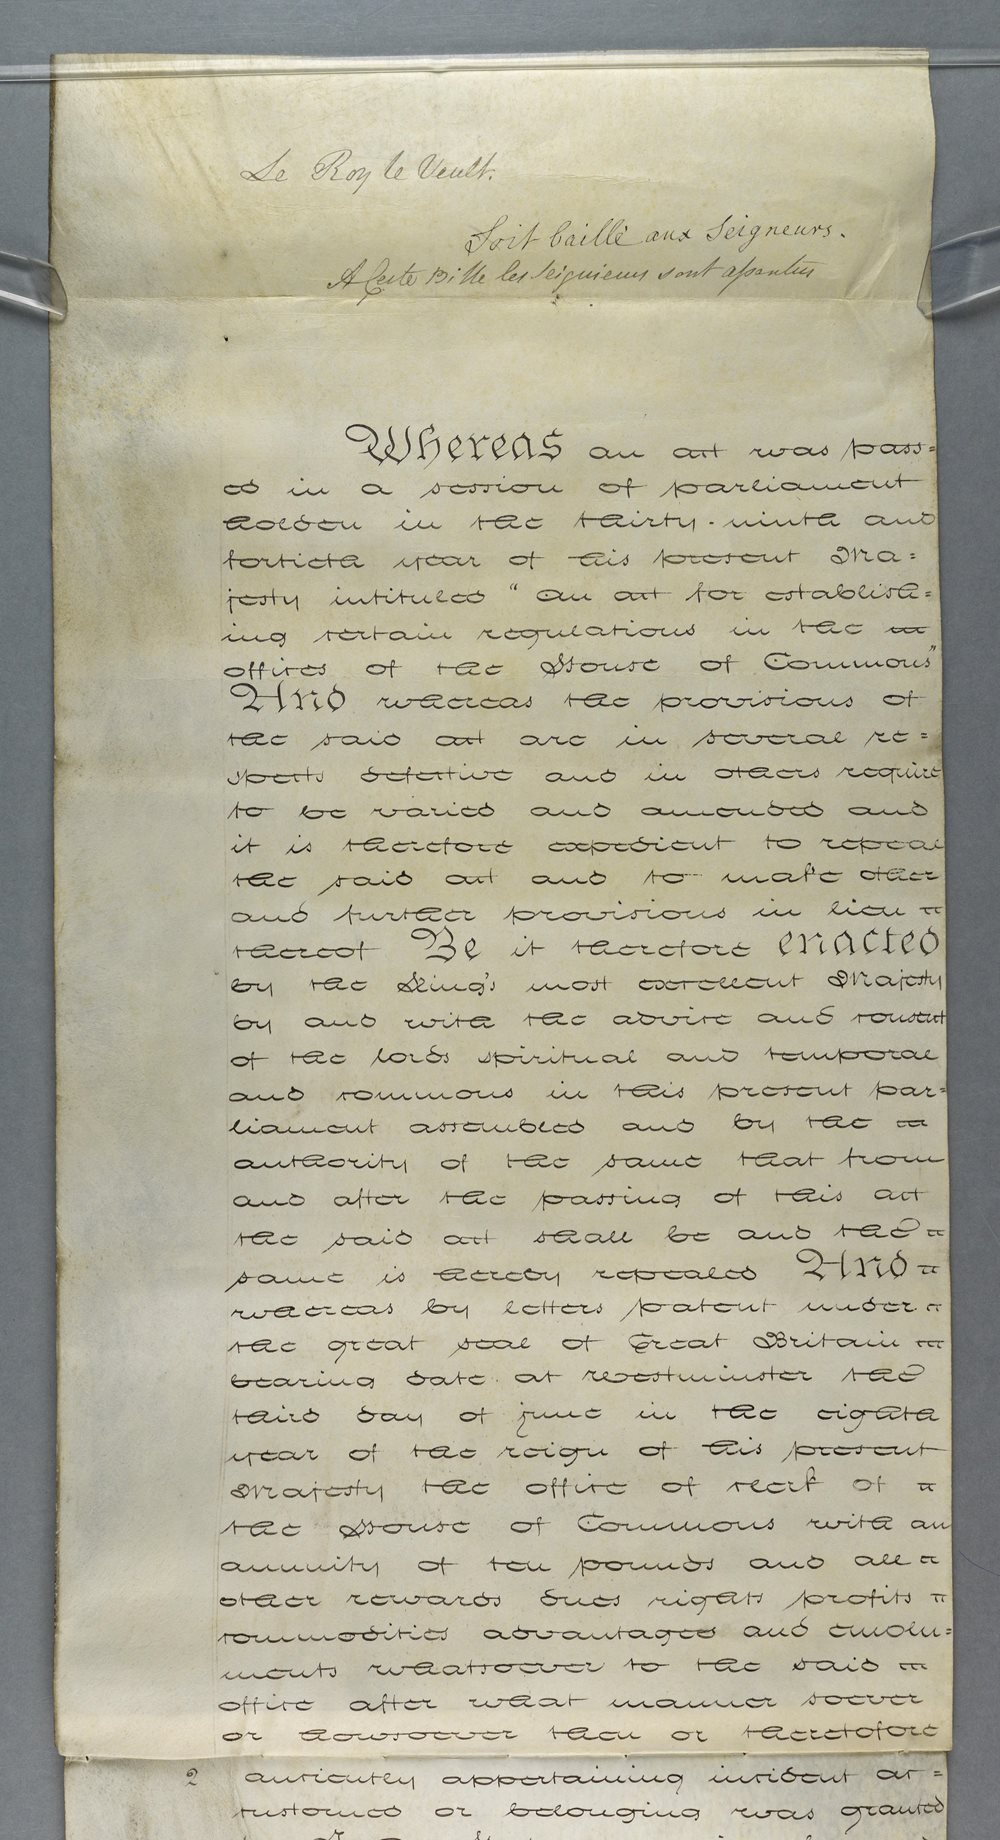 Le Roy le Veult.
Soit baillé aux Seigneurs.
A Ceste Bille les Seignieurs sont assentus
Whereas an act was pass=
ed in a session of parliament
holden in the thirty-ninth and
fortieth year of his present Ma=
jesty intituled "An act for establish=
ing certain regulations in the
offices of the House of Commons"
And whereas the provisions of
the said act are in several re=
spects defective and in others require
to be varied and amended and
it is therefore expedient to repeal
the said act and to make other
and further provisions in lieu
thereof Be it therefore enacted
by the King's most excellent Majesty
by and with the advice and consent
of the lords spiritual and temporal
and commons in this present par=
liament assembled and by the
authority of the same that from
and after the passing of this act
the said act shall be and the
same is hereby repealed And
whereas by letters patent under
the great seal of Great Britain
bearing date at westminster the
third day of june in the eighth
year of the reign of his present
Majesty the office of clerk of
the House of Commons with an
annuity of ten pounds and all
other rewards dues rights profits
commodities advantages and emolu=
ments whatsoever to the said
office after what manner soever
or howsoever then or theretofore
2 anciently appertaining incident ac=
customed or belonging was granted